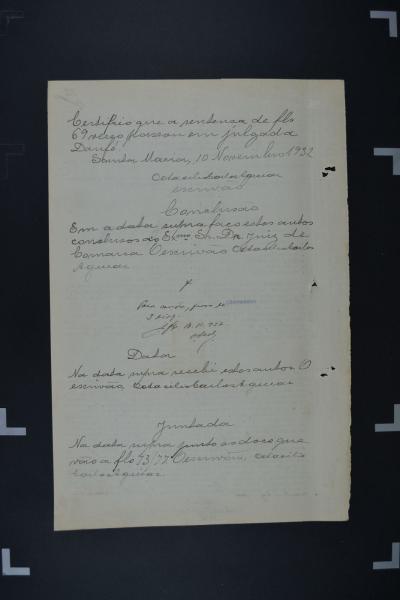 Certifico que a sentensa de fls
69 verço passou em julgada
Dou fé
Santa Maria, 10 Novembro 1932
Octacilio Carlos Aguiar
escrivão
Conclusão
Em a data supra faço estes autos
conclusos ao Exmo. Sr. Dr. Juiz de
Comarca O escrivão Octacilio Carlos
Aguiar
Data
Na data supra recebi estes autos. O
escrivão Octacilio Carlos Aguiar
Juntada
Na data supra junto as docs que
vão a fls 73/77 O escrivão, Octacilio
Carlos Aguiar